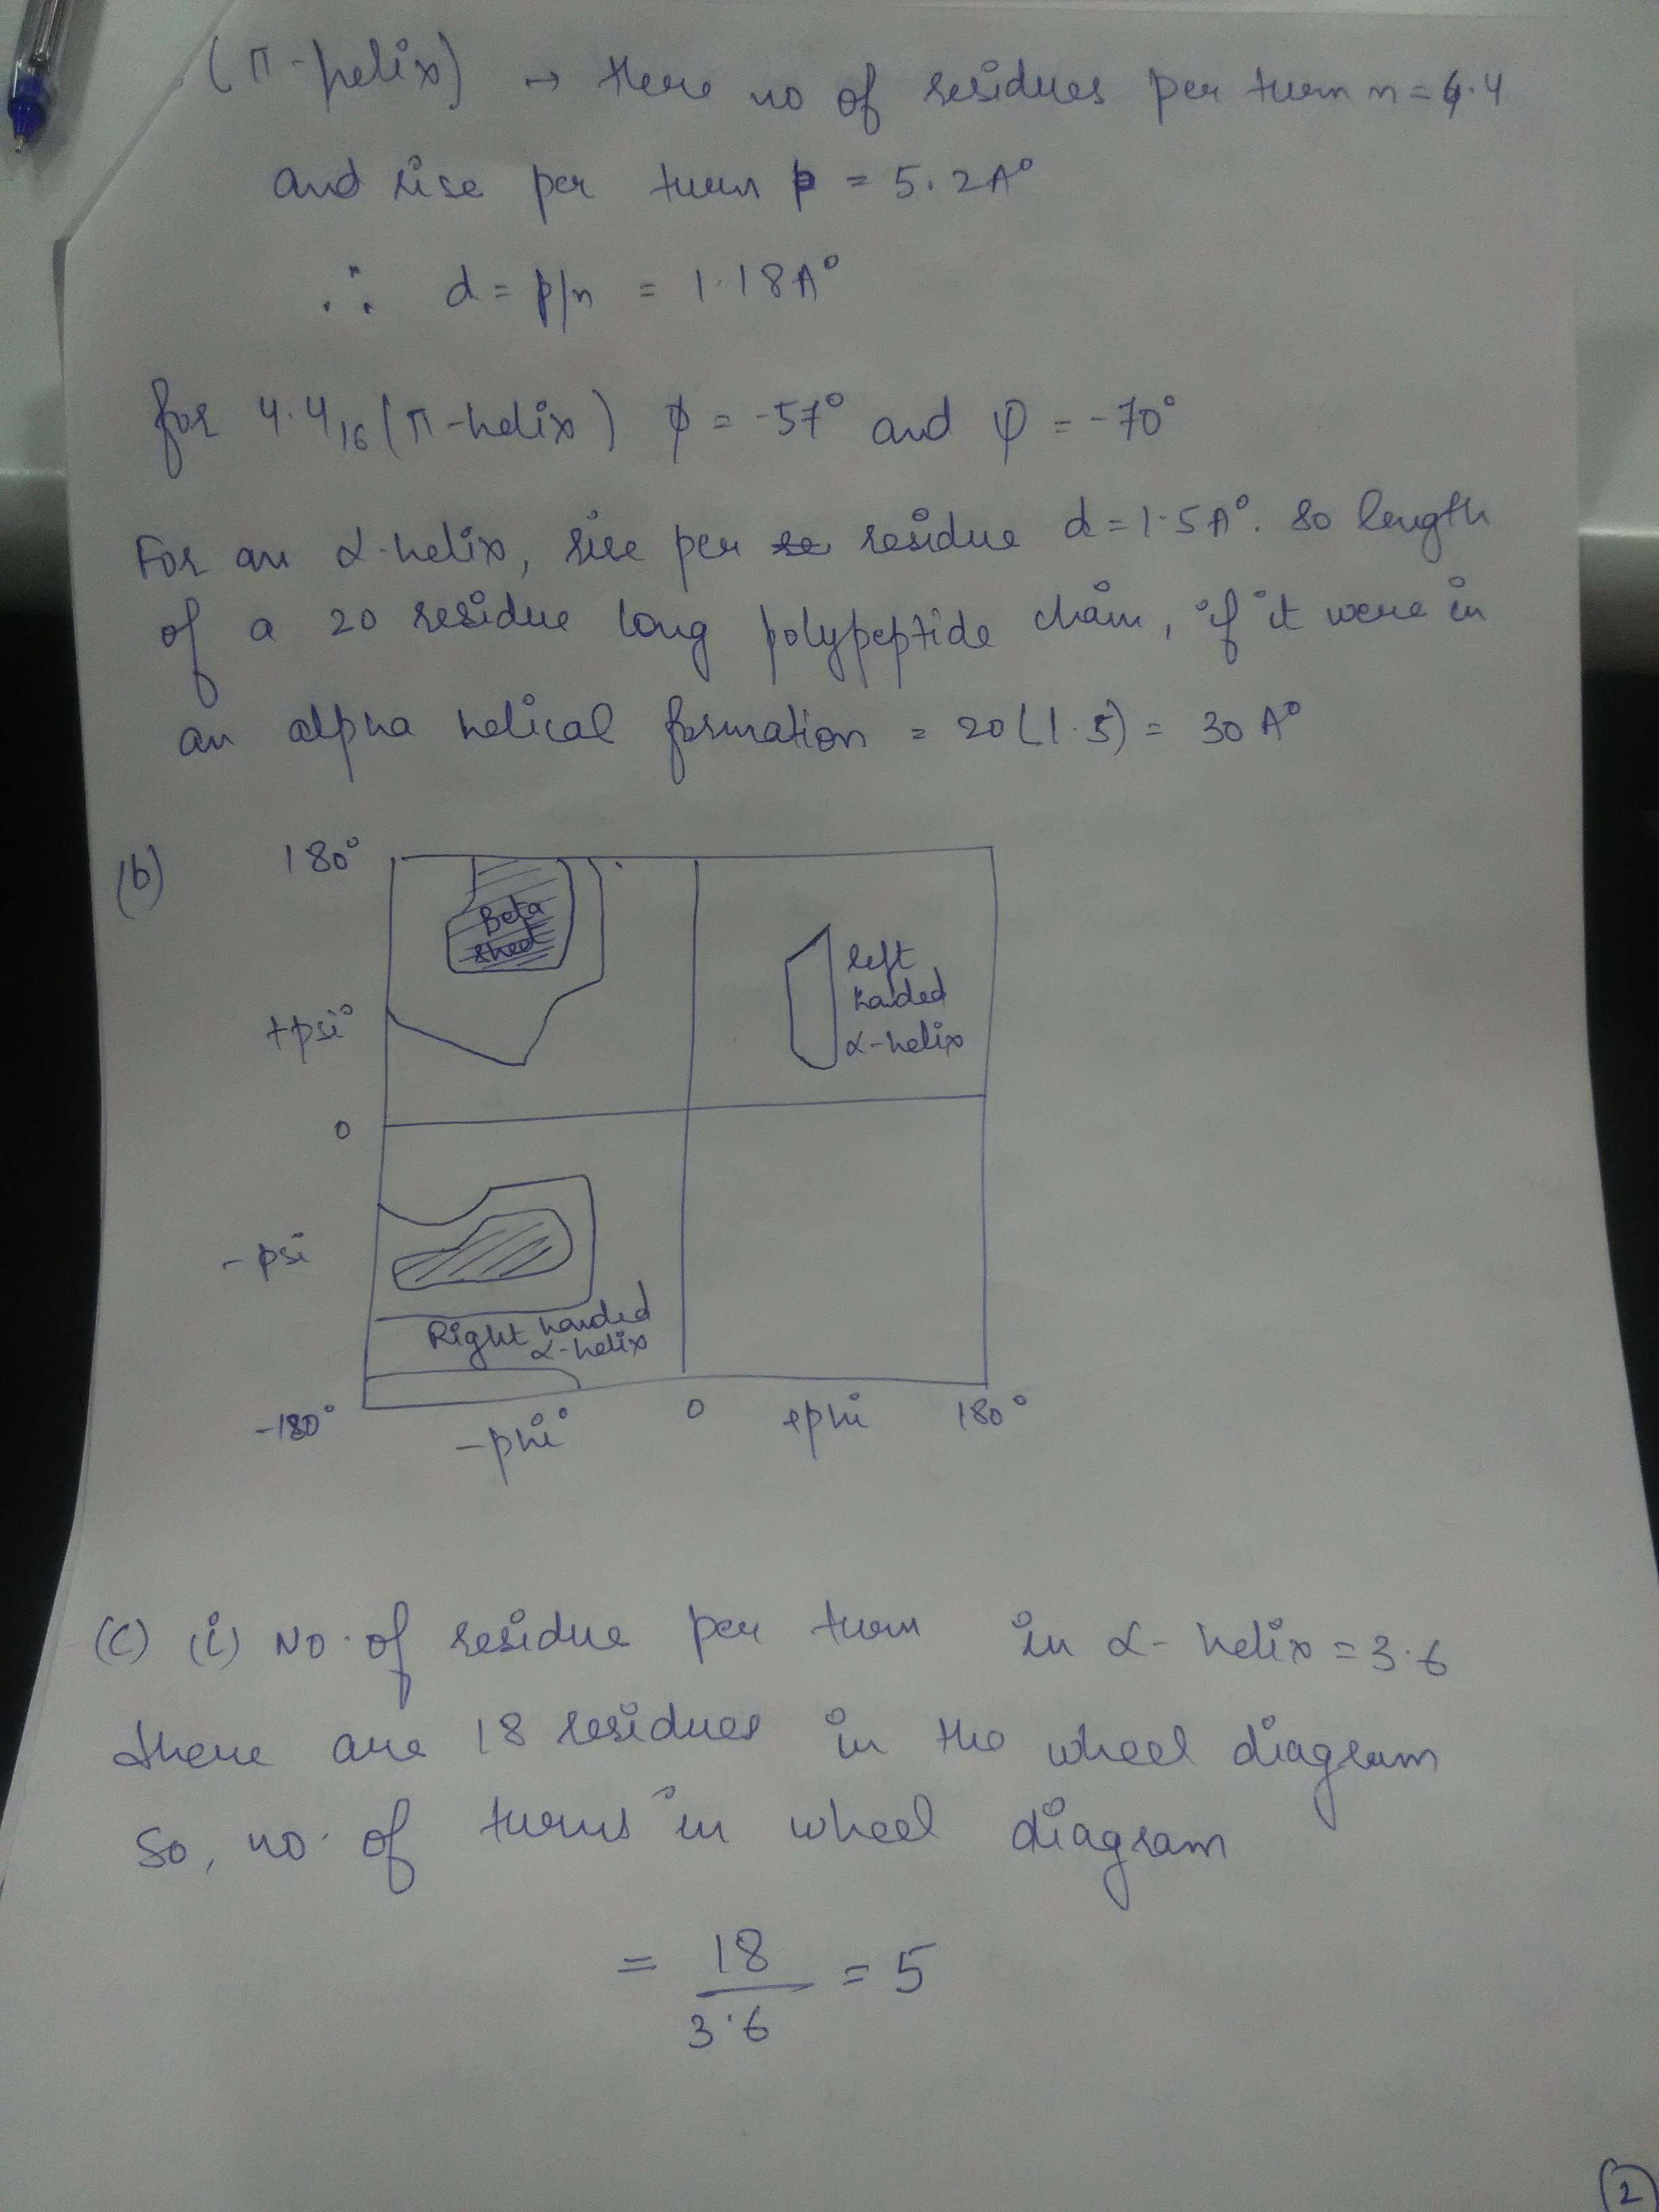 (π-helix) → Here no of residues per turn n = 4.4
and rise per turn p = 5.2A°
∴ d = p/n = 1.18A°
for 4.4₁₆ (π-helix) φ = -57° and ψ = -70°
For an α-helix, rise per residue d = 1.5A°. So length
of a 20 residue long polypeptide chain, if it were in
an alpha helical formation = 20(1.5) = 30 A°
(b) 180°
Beta
sheet
left
handed
α-helix
+psi°
0
-psi
Right handed
α-helix
-180°
-phi°
0
+phi
180°
(c) (i) No. of residue per turn in α-helix = 3.6
there are 18 residues in the wheel diagram
So, no. of turns in wheel diagram
= 18/3.6 = 5
2